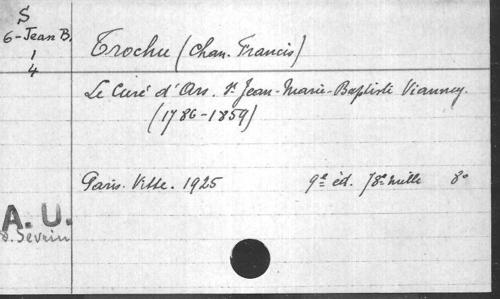 S
6-Jean B.
1
4
Trochu (Chan. Francis)
Le Curé d'Ars. St Jean-Marie-Baptiste Vianney.
(1786-1859)
Paris. Vitte. 1925 9e éd. 78e mille 8º
A. U.
S. Sévrin